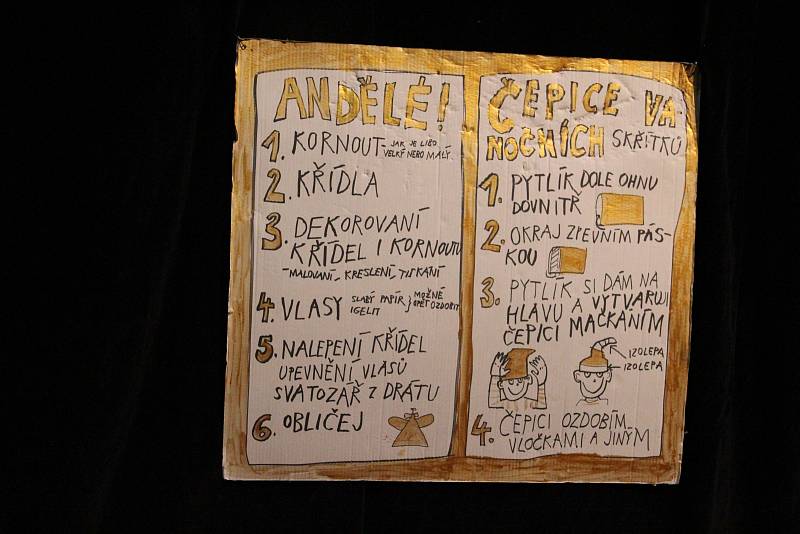 ANDĚLÉ!
1. KORNOUT - JAK JE LIBO
VELKÝ NEBO MALÝ
2. KŘÍDLA
3. DEKOROVANÍ
KŘÍDEL I KORNOUTU
- MALOVANÍ, KRESLENÍ, TISKÁNÍ
4. VLASY SLABÝ PAPÍR } MOŽNÉ
IGELIT OPĚT OZDOBIT
5. NALEPENÍ KŘÍDEL
UPEVNĚNÍ VLASŮ
SVATOZÁŘ Z DRÁTU
6. OBLIČEJ
ČEPICE VA-
NOČNÍCH SKŘÍTKŮ
1. PYTLÍK DOLE OHNU
DOVNITŘ
2. OKRAJ ZPEVNÍM PÁS-
KOU
3. PYTLÍK SI DÁM NA
HLAVU A VYTVARUJI
ČEPICI MAČKÁNÍM
IZOLEPA
IZOLEPA
4. ČEPICI OZDOBÍM
VLOČKAMI A JINÝM